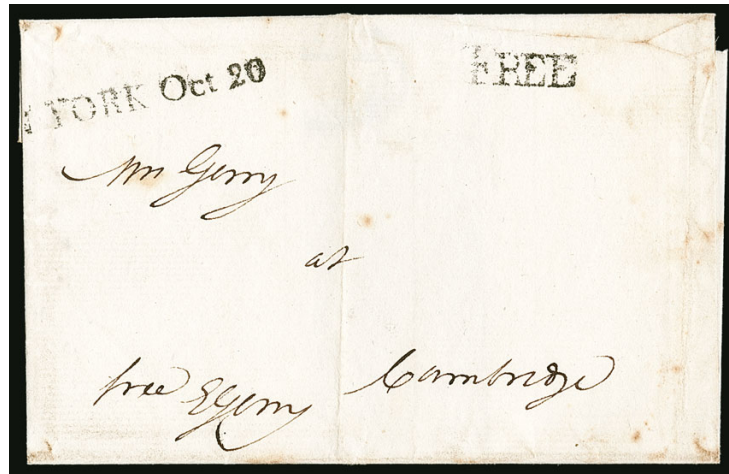 YORK Oct 20
FREE
Mrs Gerry
at
Cambridge
free E Gerry